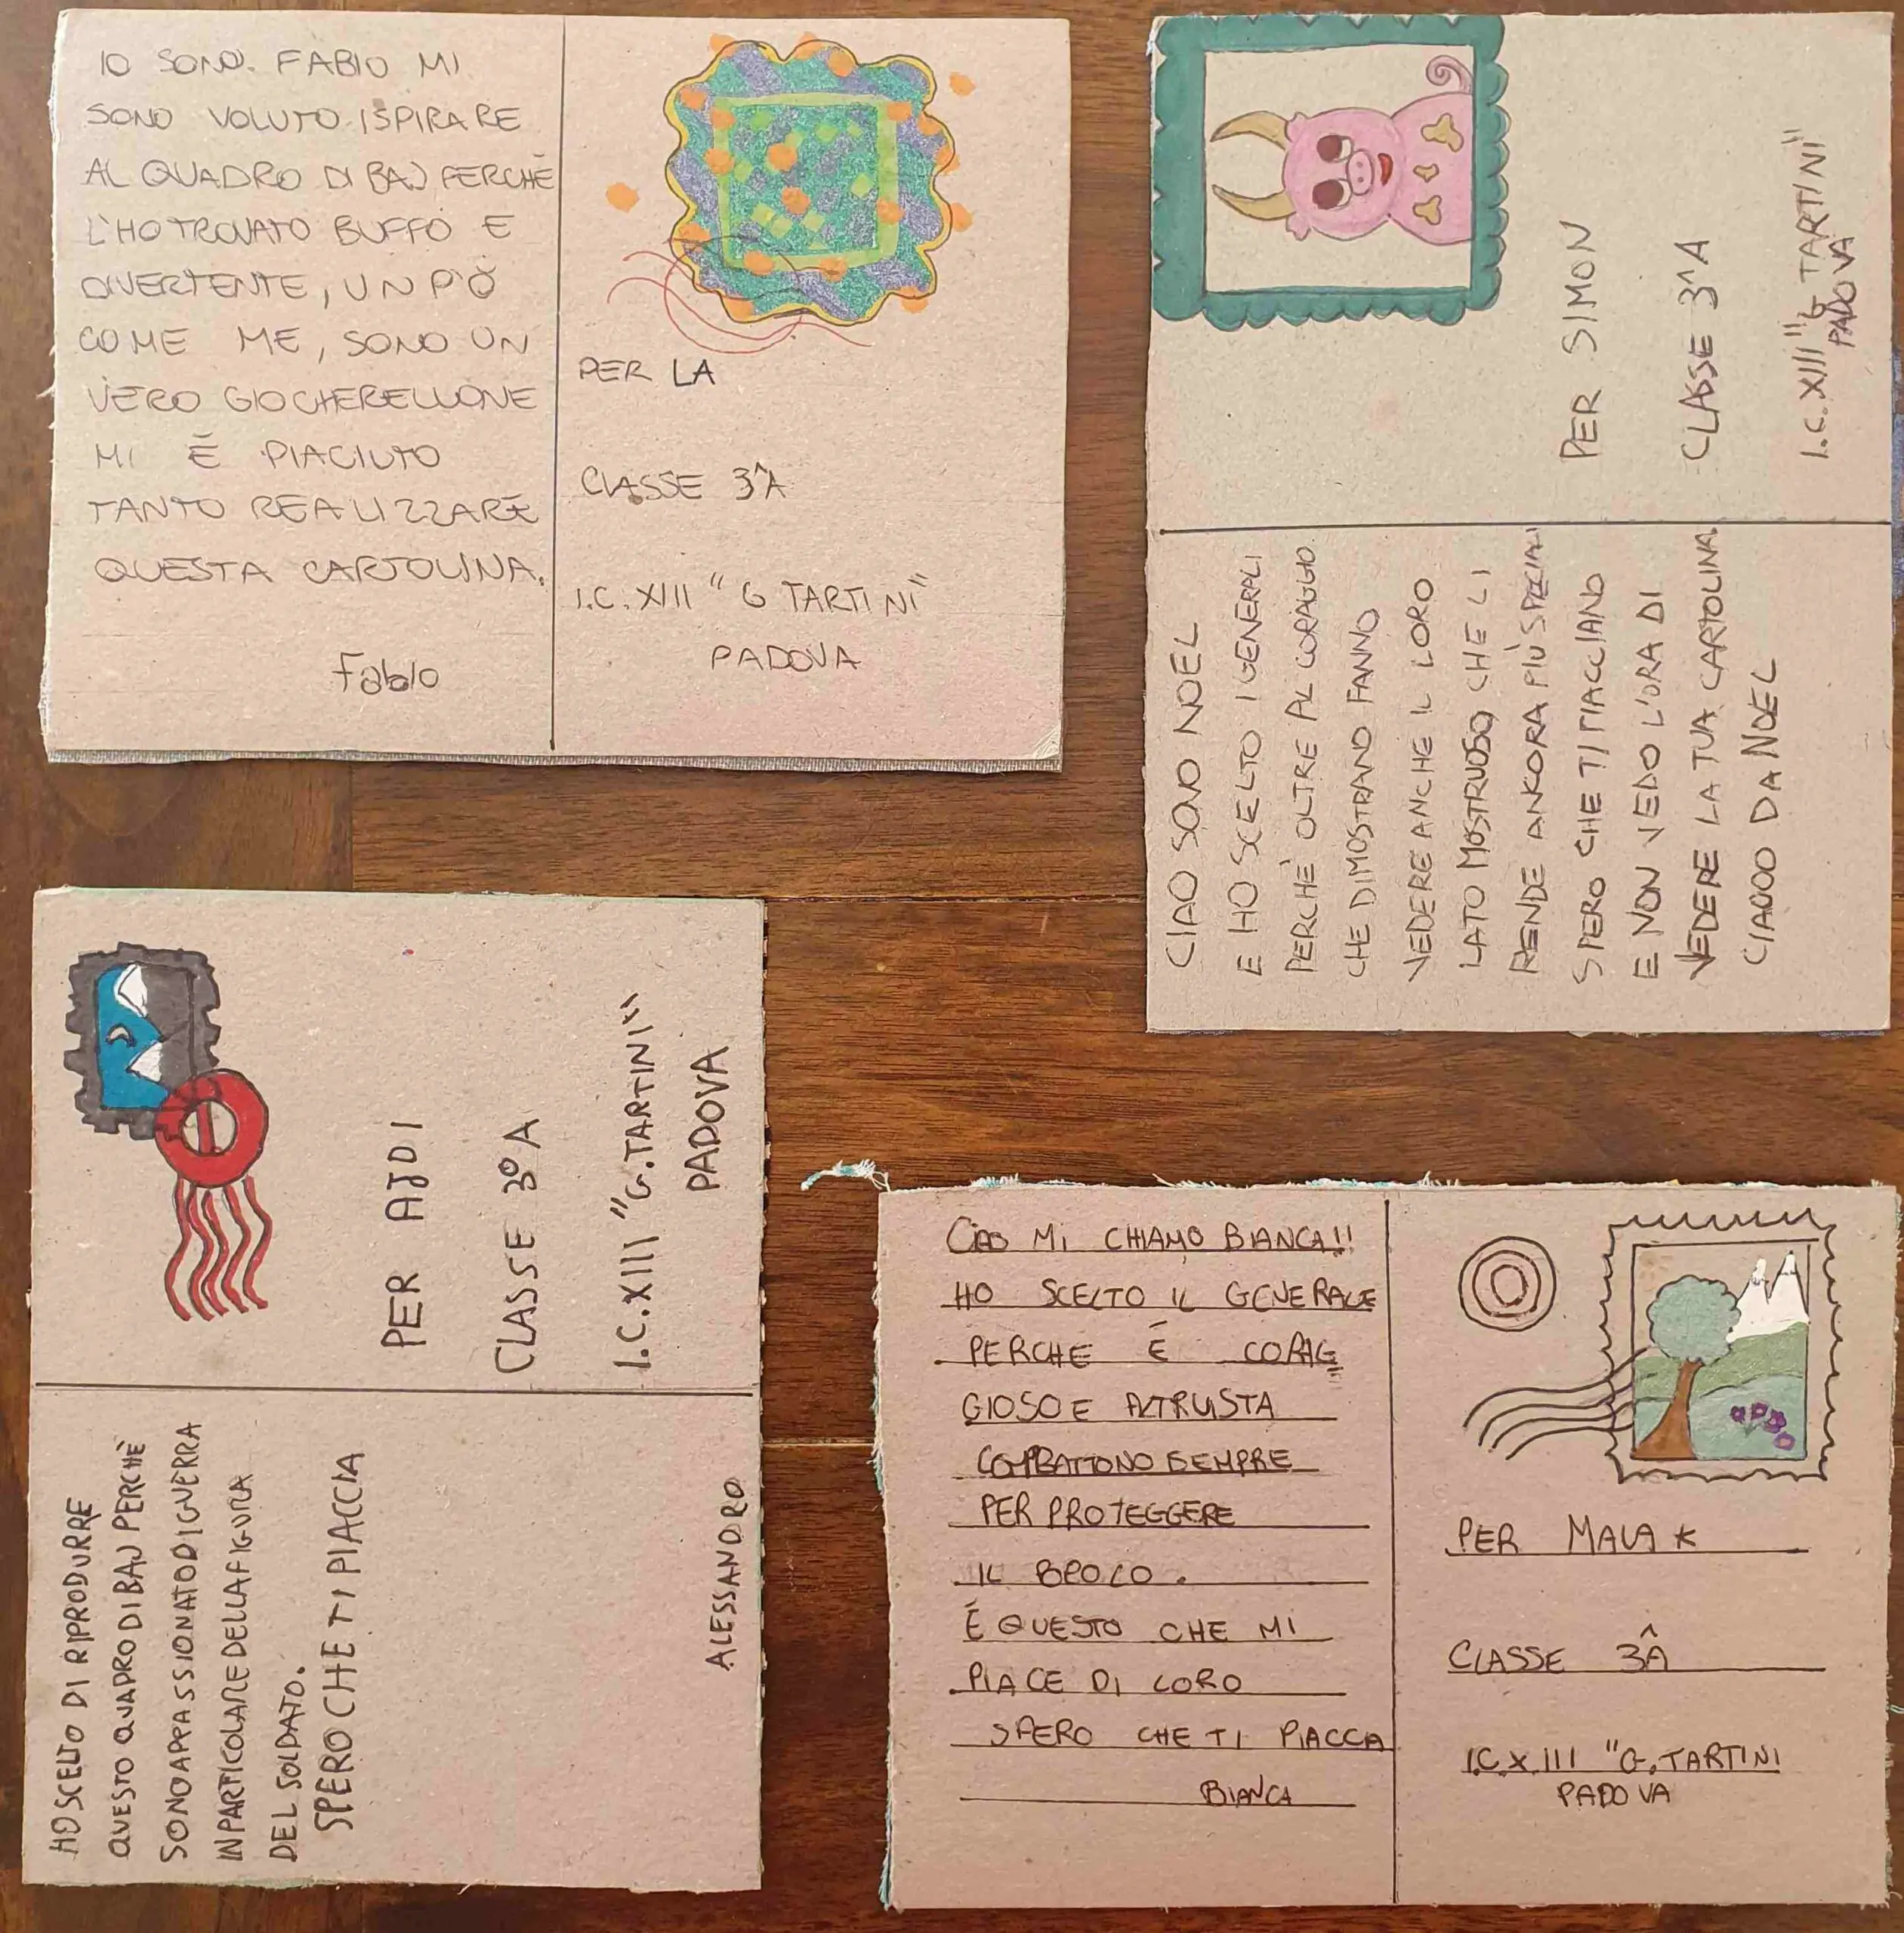 IO SONO. FABIO MI
SONO VOLUTO ISPIRARE
AL QUADRO DI BAJ PERCHÈ
L'HO TROVATO BUFFO E
DIVERTENTE, UN PÒ
COME ME, SONO UN
VERO GIOCHERELLONE
MI È PIACIUTO
TANTO REALIZZARE
QUESTA CARTOLINA.
Fabio
PER LA
CLASSE 3^A
I.C. XIII "G TARTINI"
PADOVA
CIAO SONO NOEL
E HO SCELTO I GENERALI
PERCHÈ OLTRE AL CORAGGIO
CHE DIMOSTRANO FANNO
VEDERE ANCHE IL LORO
LATO MOSTRUOSO, CHE LI
RENDE ANCORA PIÙ SPECIALI
SPERO CHE TI PIACCIANO
E NON VEDO L'ORA DI
VEDERE LA TUA CARTOLINA.
CIAOOO DA NOEL
PER SIMON
CLASSE 3^A
I.C. XIII "G TARTINI"
PADOVA
HO SCELTO DI RIPRODURRE
QUESTO QUADRO DI BAJ PERCHÈ
SONO APPASSIONATO DI GUERRA
IN PARTICOLARE DELLA FIGURA
DEL SOLDATO.
SPERO CHE TI PIACCIA
ALESSANDRO
PER AJDI
CLASSE 3° A
I.C. XIII "G. TARTINI"
PADOVA
CIAO MI CHIAMO BIANCA!!
HO SCELTO IL GENERALE
PERCHE È CORAG
GIOSO E ALTRUSTA
COMBATTONO SEMPRE
PER PROTEGGERE
IL POPOLO.
È QUESTO CHE MI
PIACE DI LORO
SPERO CHE TI PIACCA
BIANCA
PER MALAK
CLASSE 3^A
I.C. XIII "G. TARTINI
PADOVA